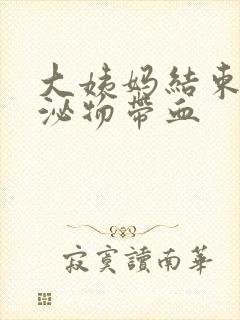 大姨妈結束
泌物带血
寂寞讀南華